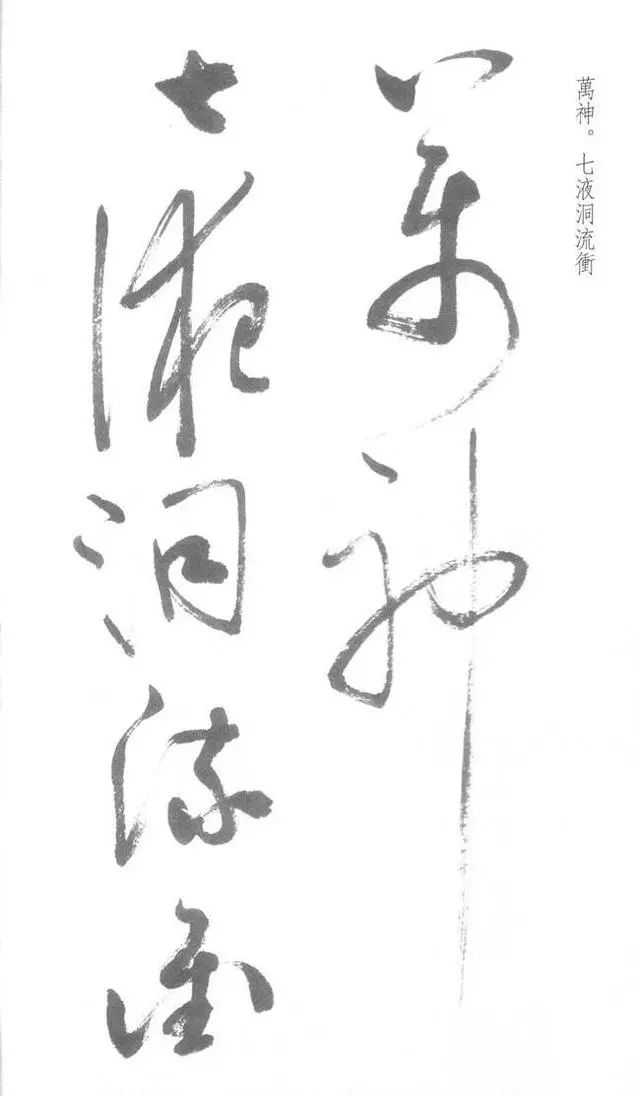 萬神。七液洞流衝
萬神
七液洞流衝